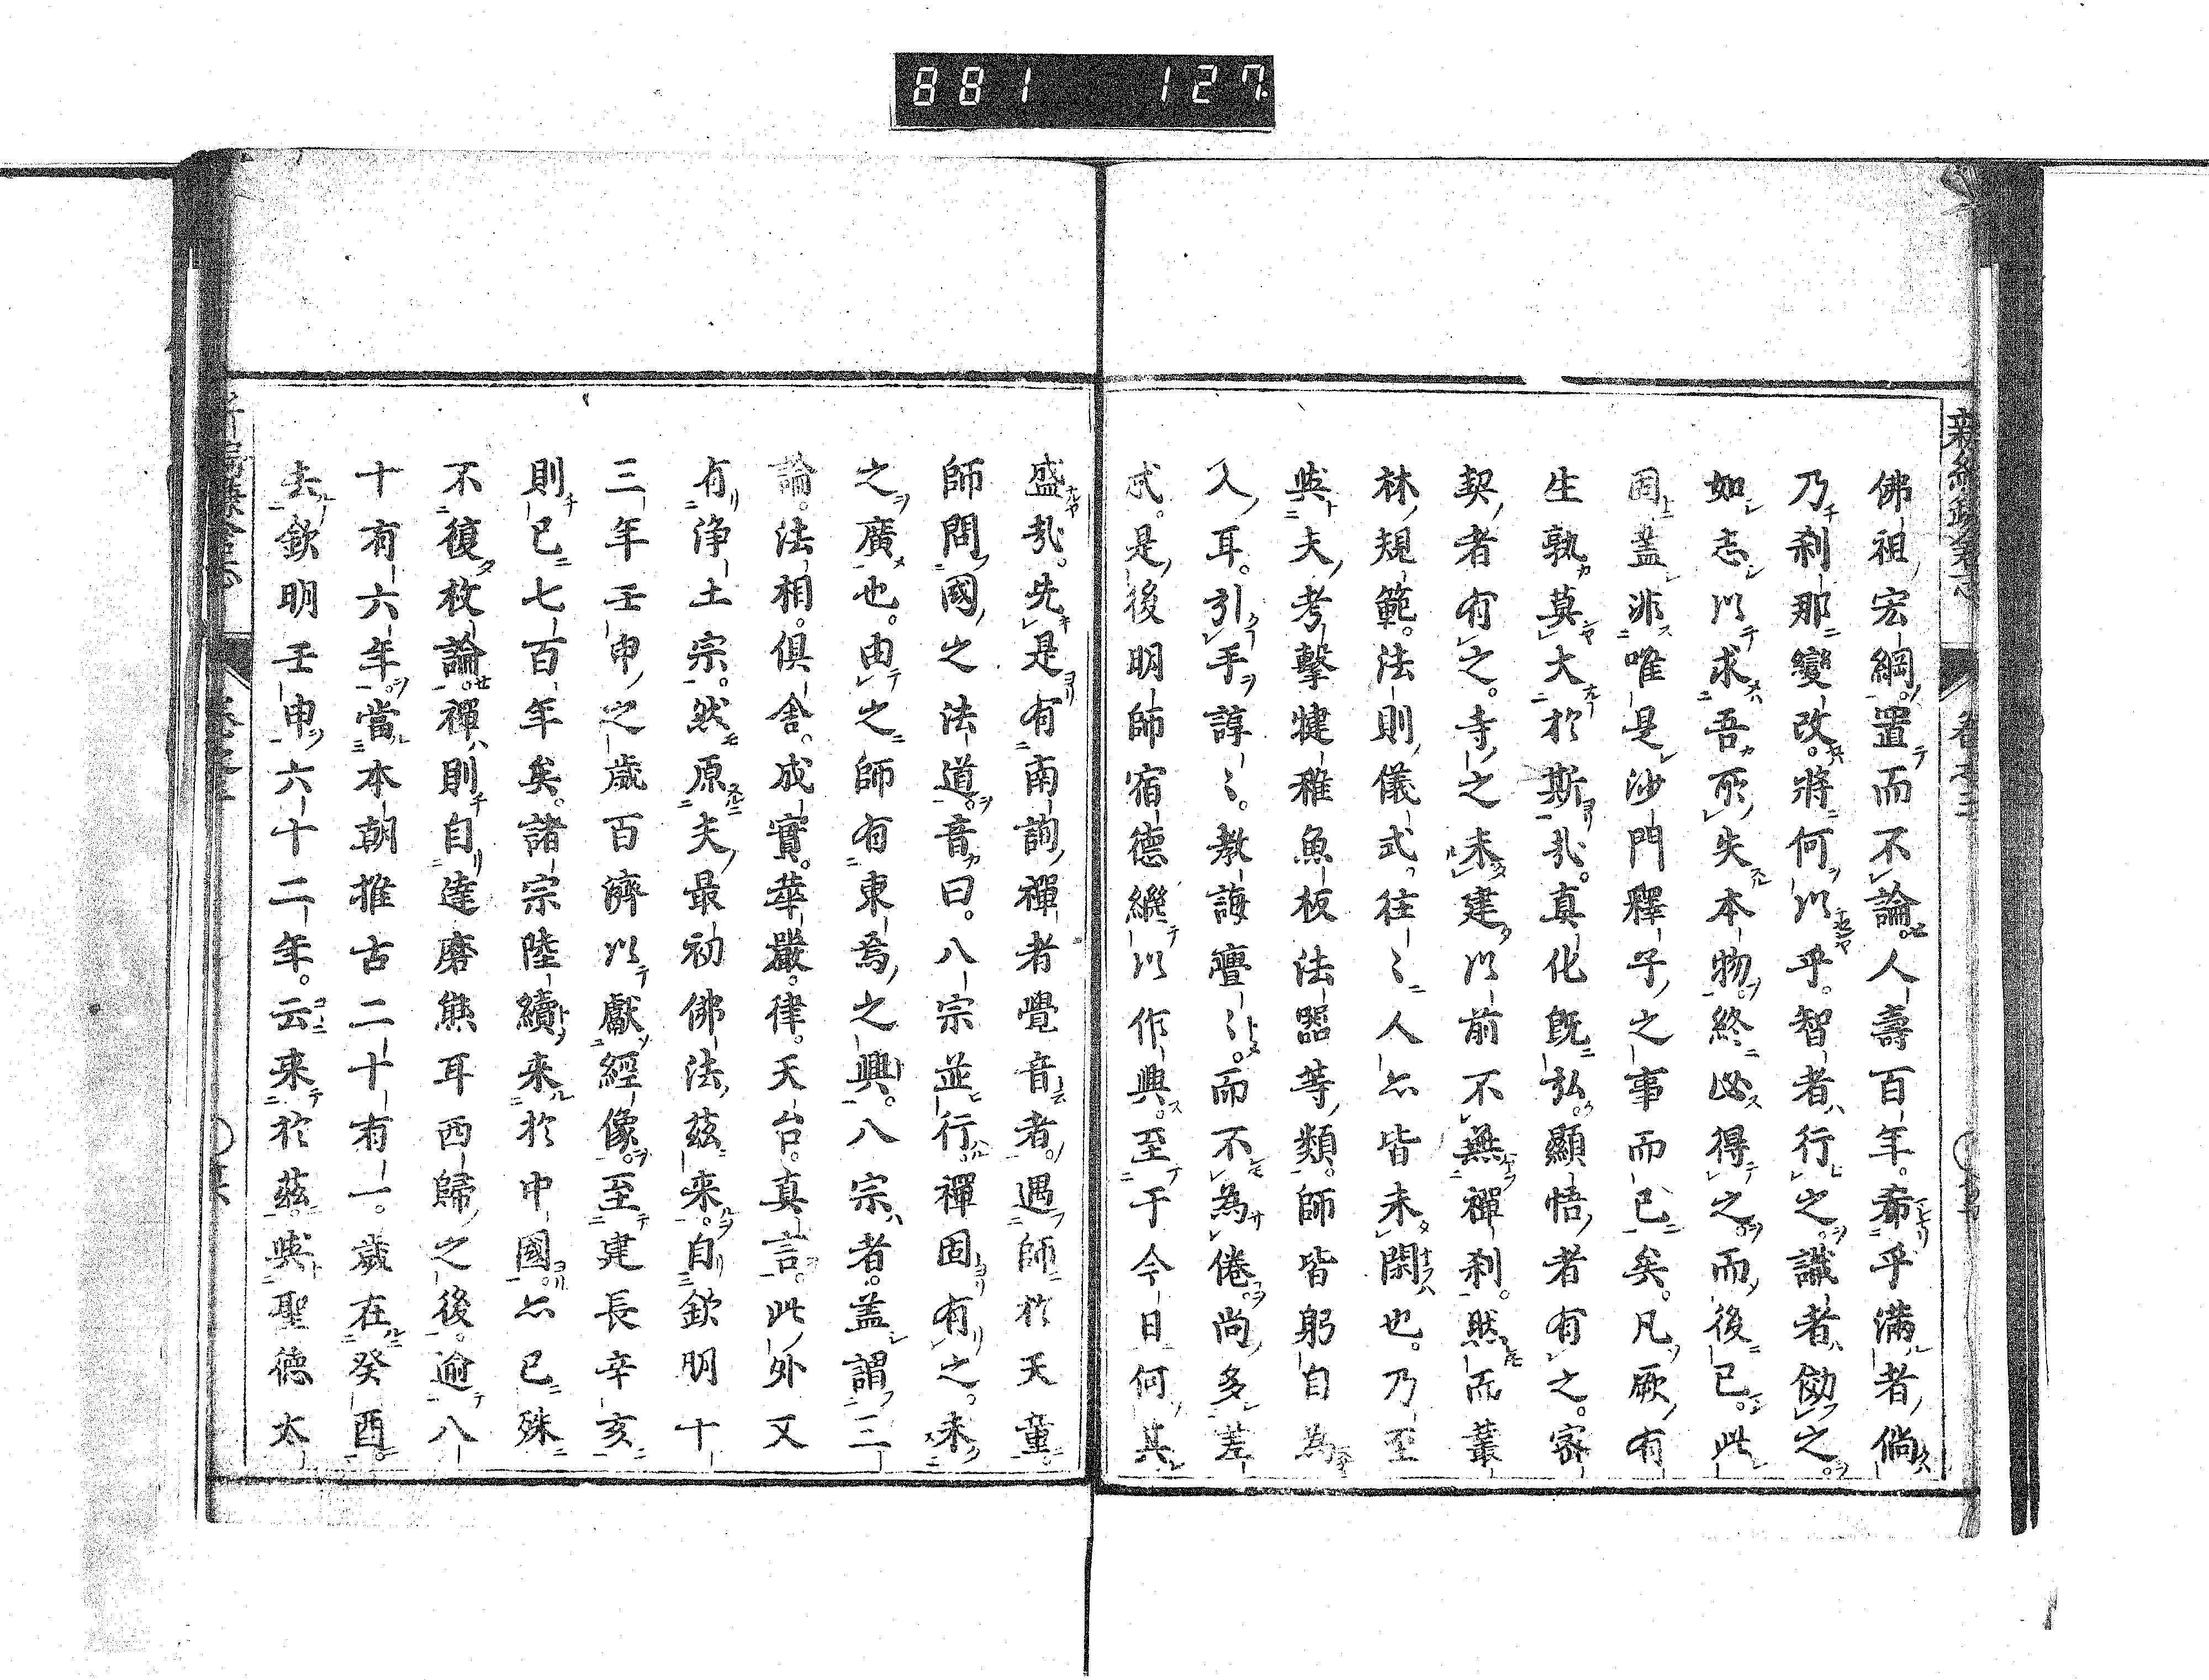 881 127
佛祖宏綱。置而不論。人壽百年。希乎滿者倘
乃刹那變改。將何以乎。智者行之。識者傚之。
如志以求吾所失本物。終必得之。而後已。此
固蓋非唯是沙門釋子之事而已矣。凡厥有
生孰莫大於斯哉。真化既弘。顯悟者有之。密
契者有之。寺之未建以前不無禪刹。然而叢
林規範。法則儀式。往〻人亦皆未閑也。乃至
與夫考擊犍稚魚板法器等類。師皆躬自為
人耳。引手諄〻。教誨亹〻。而不為倦。尚多差
忒。是後明師宿德繼以作興。至于今日何其
盛哉。先是有南詢禪者覺音者。遇師於天童。
師問國之法道。音曰。八宗並行禪固有之。未
之廣也。由之師有東焉之興。八宗者。蓋謂三
論。法相。俱舍。成實。華嚴。律。天台。真言。此外又
有浄土宗。然原夫最初佛法茲来。自欽明十
三年壬申之歳百濟以獻經像。至建長辛亥
則已七百年矣。諸宗陸續来於中國。亦已殊
不復枚論。禪則自達磨熊耳西歸之後。逾八
十有六年。當本朝推古二十有一。歳在癸酉。
去欽明壬申六十二年。云来於茲。與聖德太